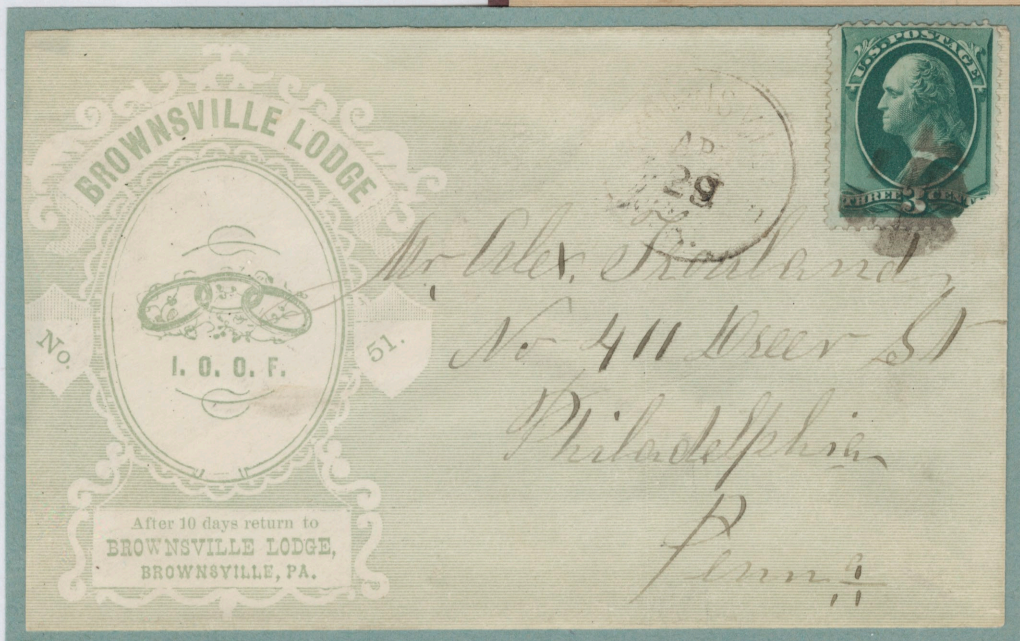 BROWNSVILLE LODGE
No. 51.
I. O. O. F.
After 10 days return to
BROWNSVILLE LODGE,
BROWNSVILLE, PA.
U.S. POSTAGE
THREE 3 CENTS
AP
29
Mr Alex.
No 411 St
Philadelphia
Penna